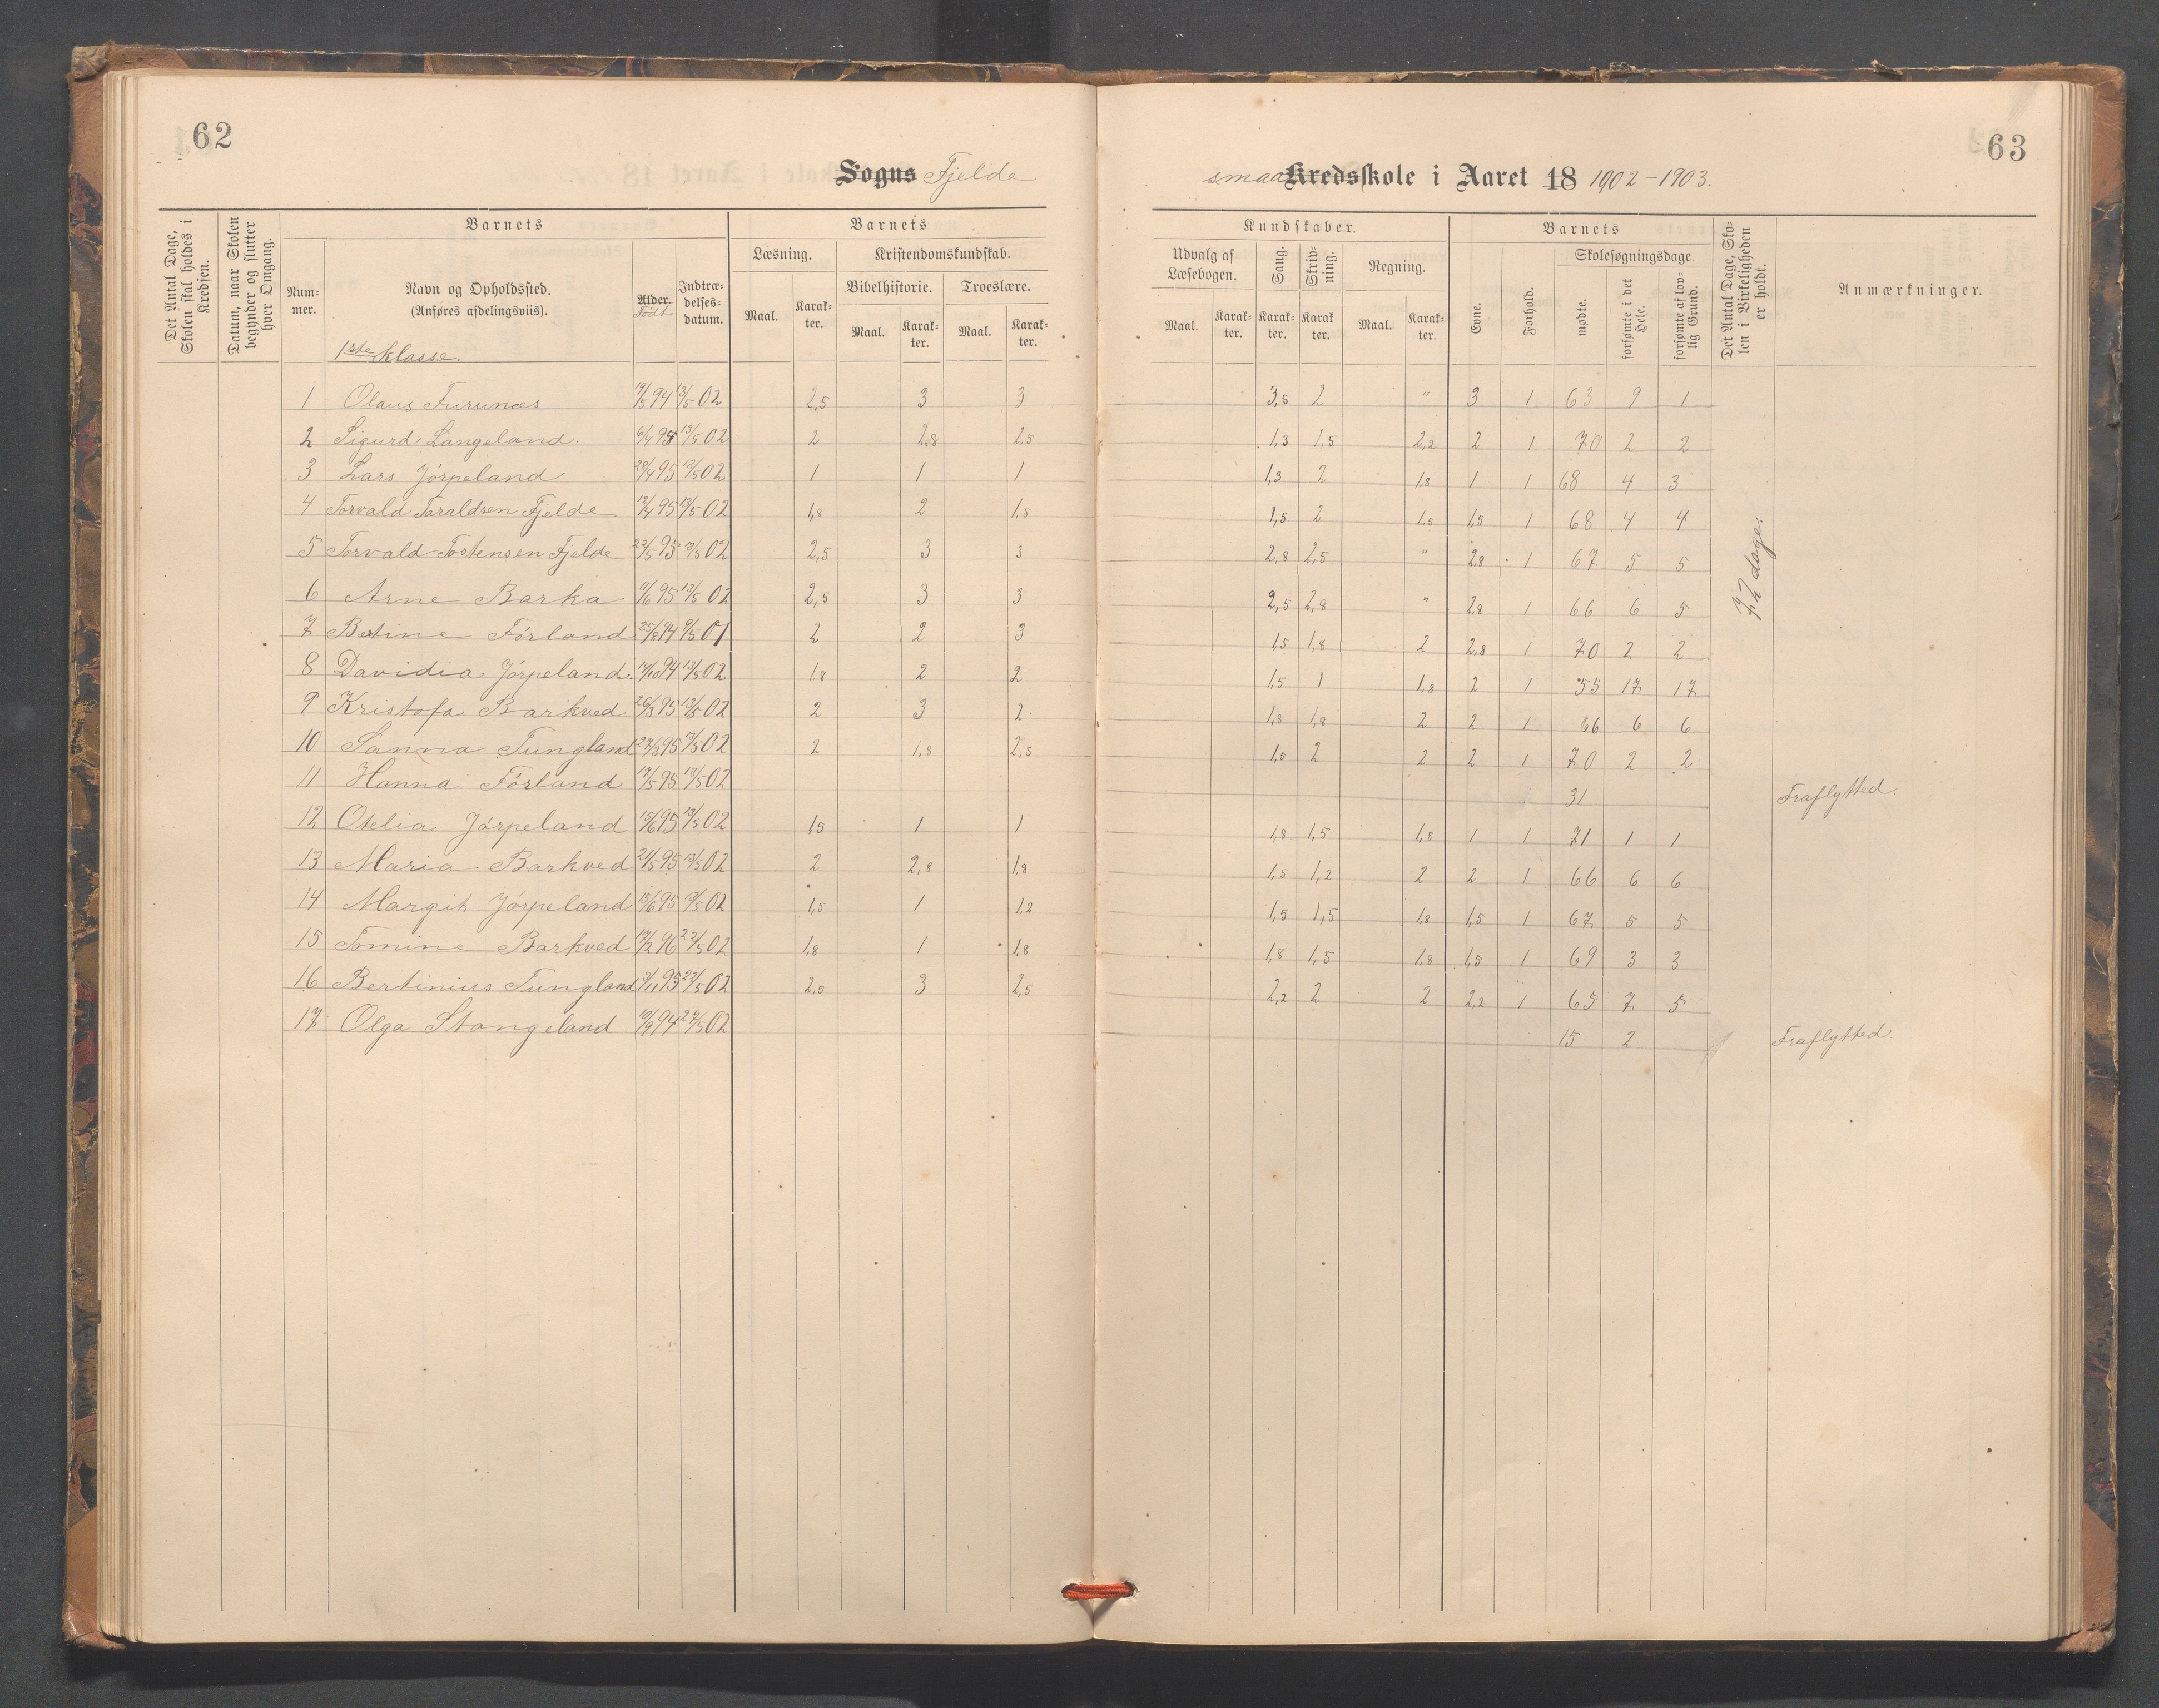 62
Sogns Fjelde
Det Antal Dage, Skolen skal holdes i Kredsen.
Datum, naar Skolen begynder og slutter hver Omgang.
Barnets
Num-mer.
Navn og Opholdssted.
(Anføres afdelingsviis).
Alder. Født
Indtræ-delses-datum.
Barnets
Læsning.
Kristendomskundskab.
Bibelhistorie.
Troeslære.
Maal.
Karak-ter.
Maal.
Karak-ter.
Maal.
Karak-ter.
1ste klasse.
1 Olaus Furunæs 19/5 94 13/5 02 2,5 3 3
2 Sigurd Langeland. 6/4 95 13/5 02 2 2,8 2,5
3 Lars Jørpeland 28/4 95 13/5 02 1 1 1
4 Torvald Taraldsen Fjelde 12/4 95 13/5 02 1,8 2 1,5
5 Torvald Tostensen Fjelde 23/5 95 13/5 02 2,5 3 3
6 Arne Barka 11/6 95 13/5 02 2,5 3 3
7 Betine Førland 25/8 94 9/5 01 2 2 3
8 Davidia Jørpeland. 17/10 94 13/5 02 1,8 2 2
9 Kristofa Barkved 26/3 95 13/5 02 2 3 2
10 Sanna Tungland 27/3 95 13/5 02 2 1,8 2,5
11 Hanna Førland 17/5 95 13/5 02
12 Otelia Jørpeland 15/6 95 13/5 02 1,5 1 1
13 Maria Barkved 21/5 95 13/5 02 2 2,8 1,8
14 Margit Jørpeland 15/6 95 13/5 02 1,5 1 1,2
15 Tomine Barkved 19/2 96 27/5 02 1,8 1 1,8
16 Bertinius Tungland 3/11 95 27/5 02 2,5 3 2,5
17 Olga Stangeland 10/9 94 27/5 02
63
smaaKredsskole i Aaret 18 1902-1903.
Kundskaber.
Udvalg af Læsebogen.
Sang.
Skriv-ning.
Regning.
Maal.
Karak-ter.
Karak-ter.
Karak ter.
Maal.
Karak-ter.
Barnets
Evne.
Forhold.
Skolesøgningsdage.
mødte.
forsømte i det Hele.
forsømte af lov-lig Grund.
Det Antal Dage, Sko-len i Virkeligheden er holdt.
Anmærkninger.
3,5 2 " 3 1 63 9 1
1,3 1,5 2,2 2 1 70 2 2
1,3 2 1,8 1 1 68 4 3
1,5 2 1,5 1,5 1 68 4 4
2,8 2,5 " 2,8 1 67 5 5
2,5 2,8 " 2,8 1 66 6 5
1,5 1,8 2 2,8 1 70 2 2
1,5 1 1,8 2 1 55 17 17
1,8 1,8 2 2 1 66 6 6
1,5 2 2 2 1 70 2 2
31 Fraflytted.
1,8 1,5 1,8 1 1 71 1 1
1,5 1,2 2 2 1 66 6 6
1,5 1,5 1,8 1,5 1 67 5 5
1,8 1,5 1,8 1,5 1 69 3 3
2,2 2 2 2,2 1 65 7 5
15 2 Fraflytted.
72 dage.